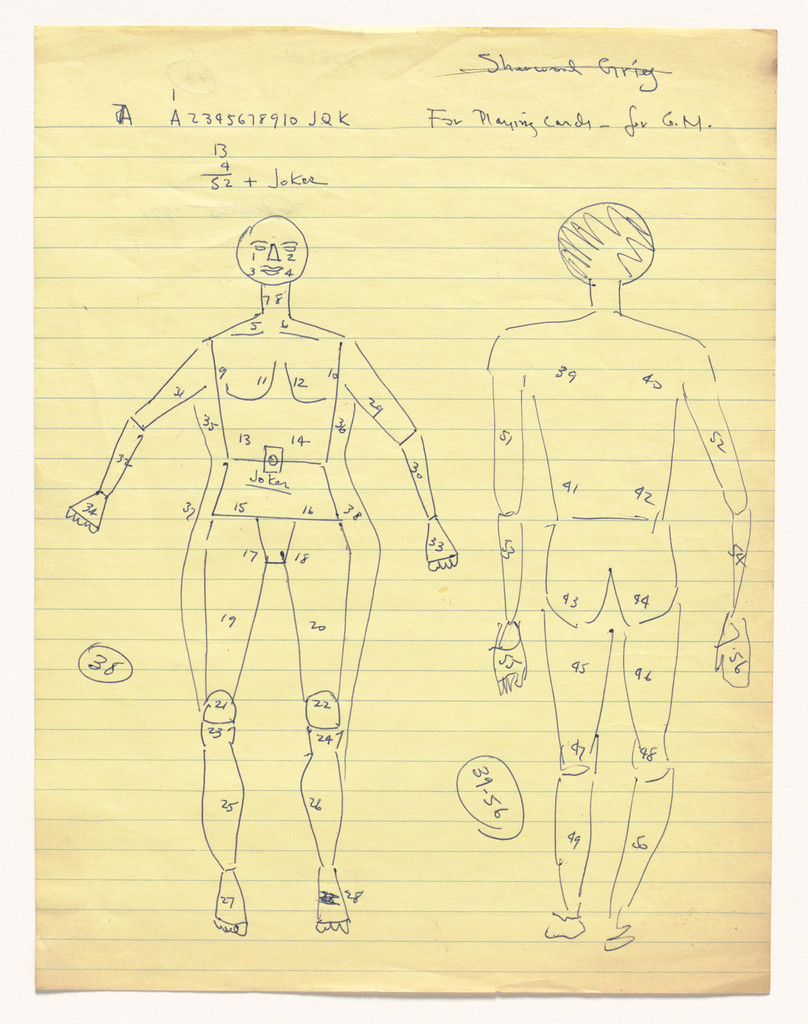 Sherwood Grig
1
A A 2 3 4 5 6 7 8 9 10 J Q K
For Playing Cards - for G.M.
13
4
52 + Joker
1 2
3 4
7 8
5 6
9 11 12 10
31 29
35 36
13 14
32 30
Joker
34
37 15 16 38
33
17 18
19 20
38
21 22
23 24
25 26
27 28
39 40
51 52
41 42
53 54
43 44
55 56
45 46
47 48
39-56
49 50